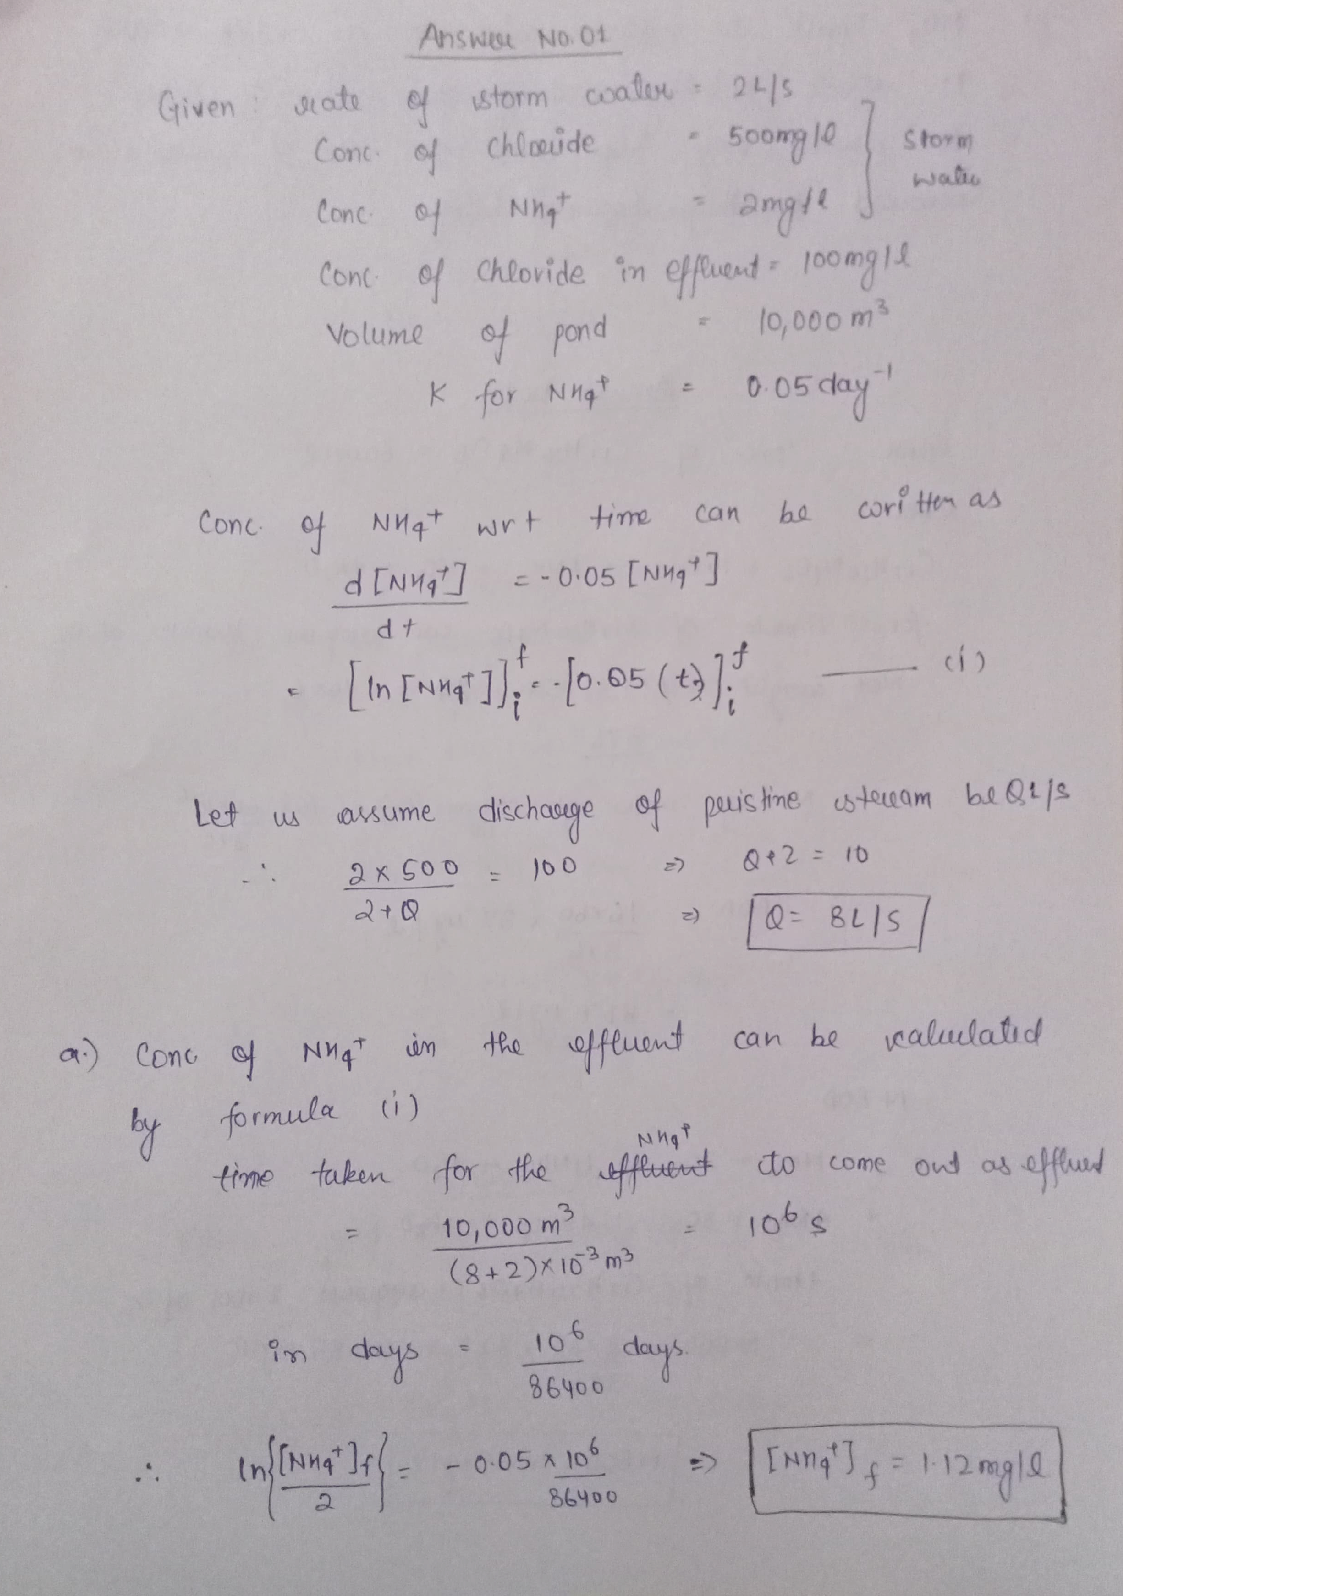 Answer No. 01
Given: rate of storm water = 2L/s
Conc. of chloride = 500mg/l
Storm water
Conc. of NH4+ = 2mg/l
Conc. of chloride in effluent = 100mg/l
Volume of pond = 10,000 m³
K for NH4+ = 0.05 day⁻¹
Conc. of NH4+ wrt time can be written as
d[NH4+]/dt = -0.05 [NH4+]
= [ln[NH4+]]ᵢᶠ = -[0.05(t)]ᵢᶠ —— (i)
Let us assume discharge of pristine stream be QL/s
∴ (2 x 500)/(2+Q) = 100 => Q+2 = 10
=> Q = 8L/S
a.) Conc of NH4+ in the effluent can be calculated
by formula (i)
time taken for the NH4+ to come out as efflued
= 10,000 m³/((8+2)x10⁻³ m³) = 10⁶ s
in days = 10⁶/86400 days.
∴ ln{[NH4+]f/2} = -0.05 x 10⁶/86400 => [NH4+]f = 1.12mg/l